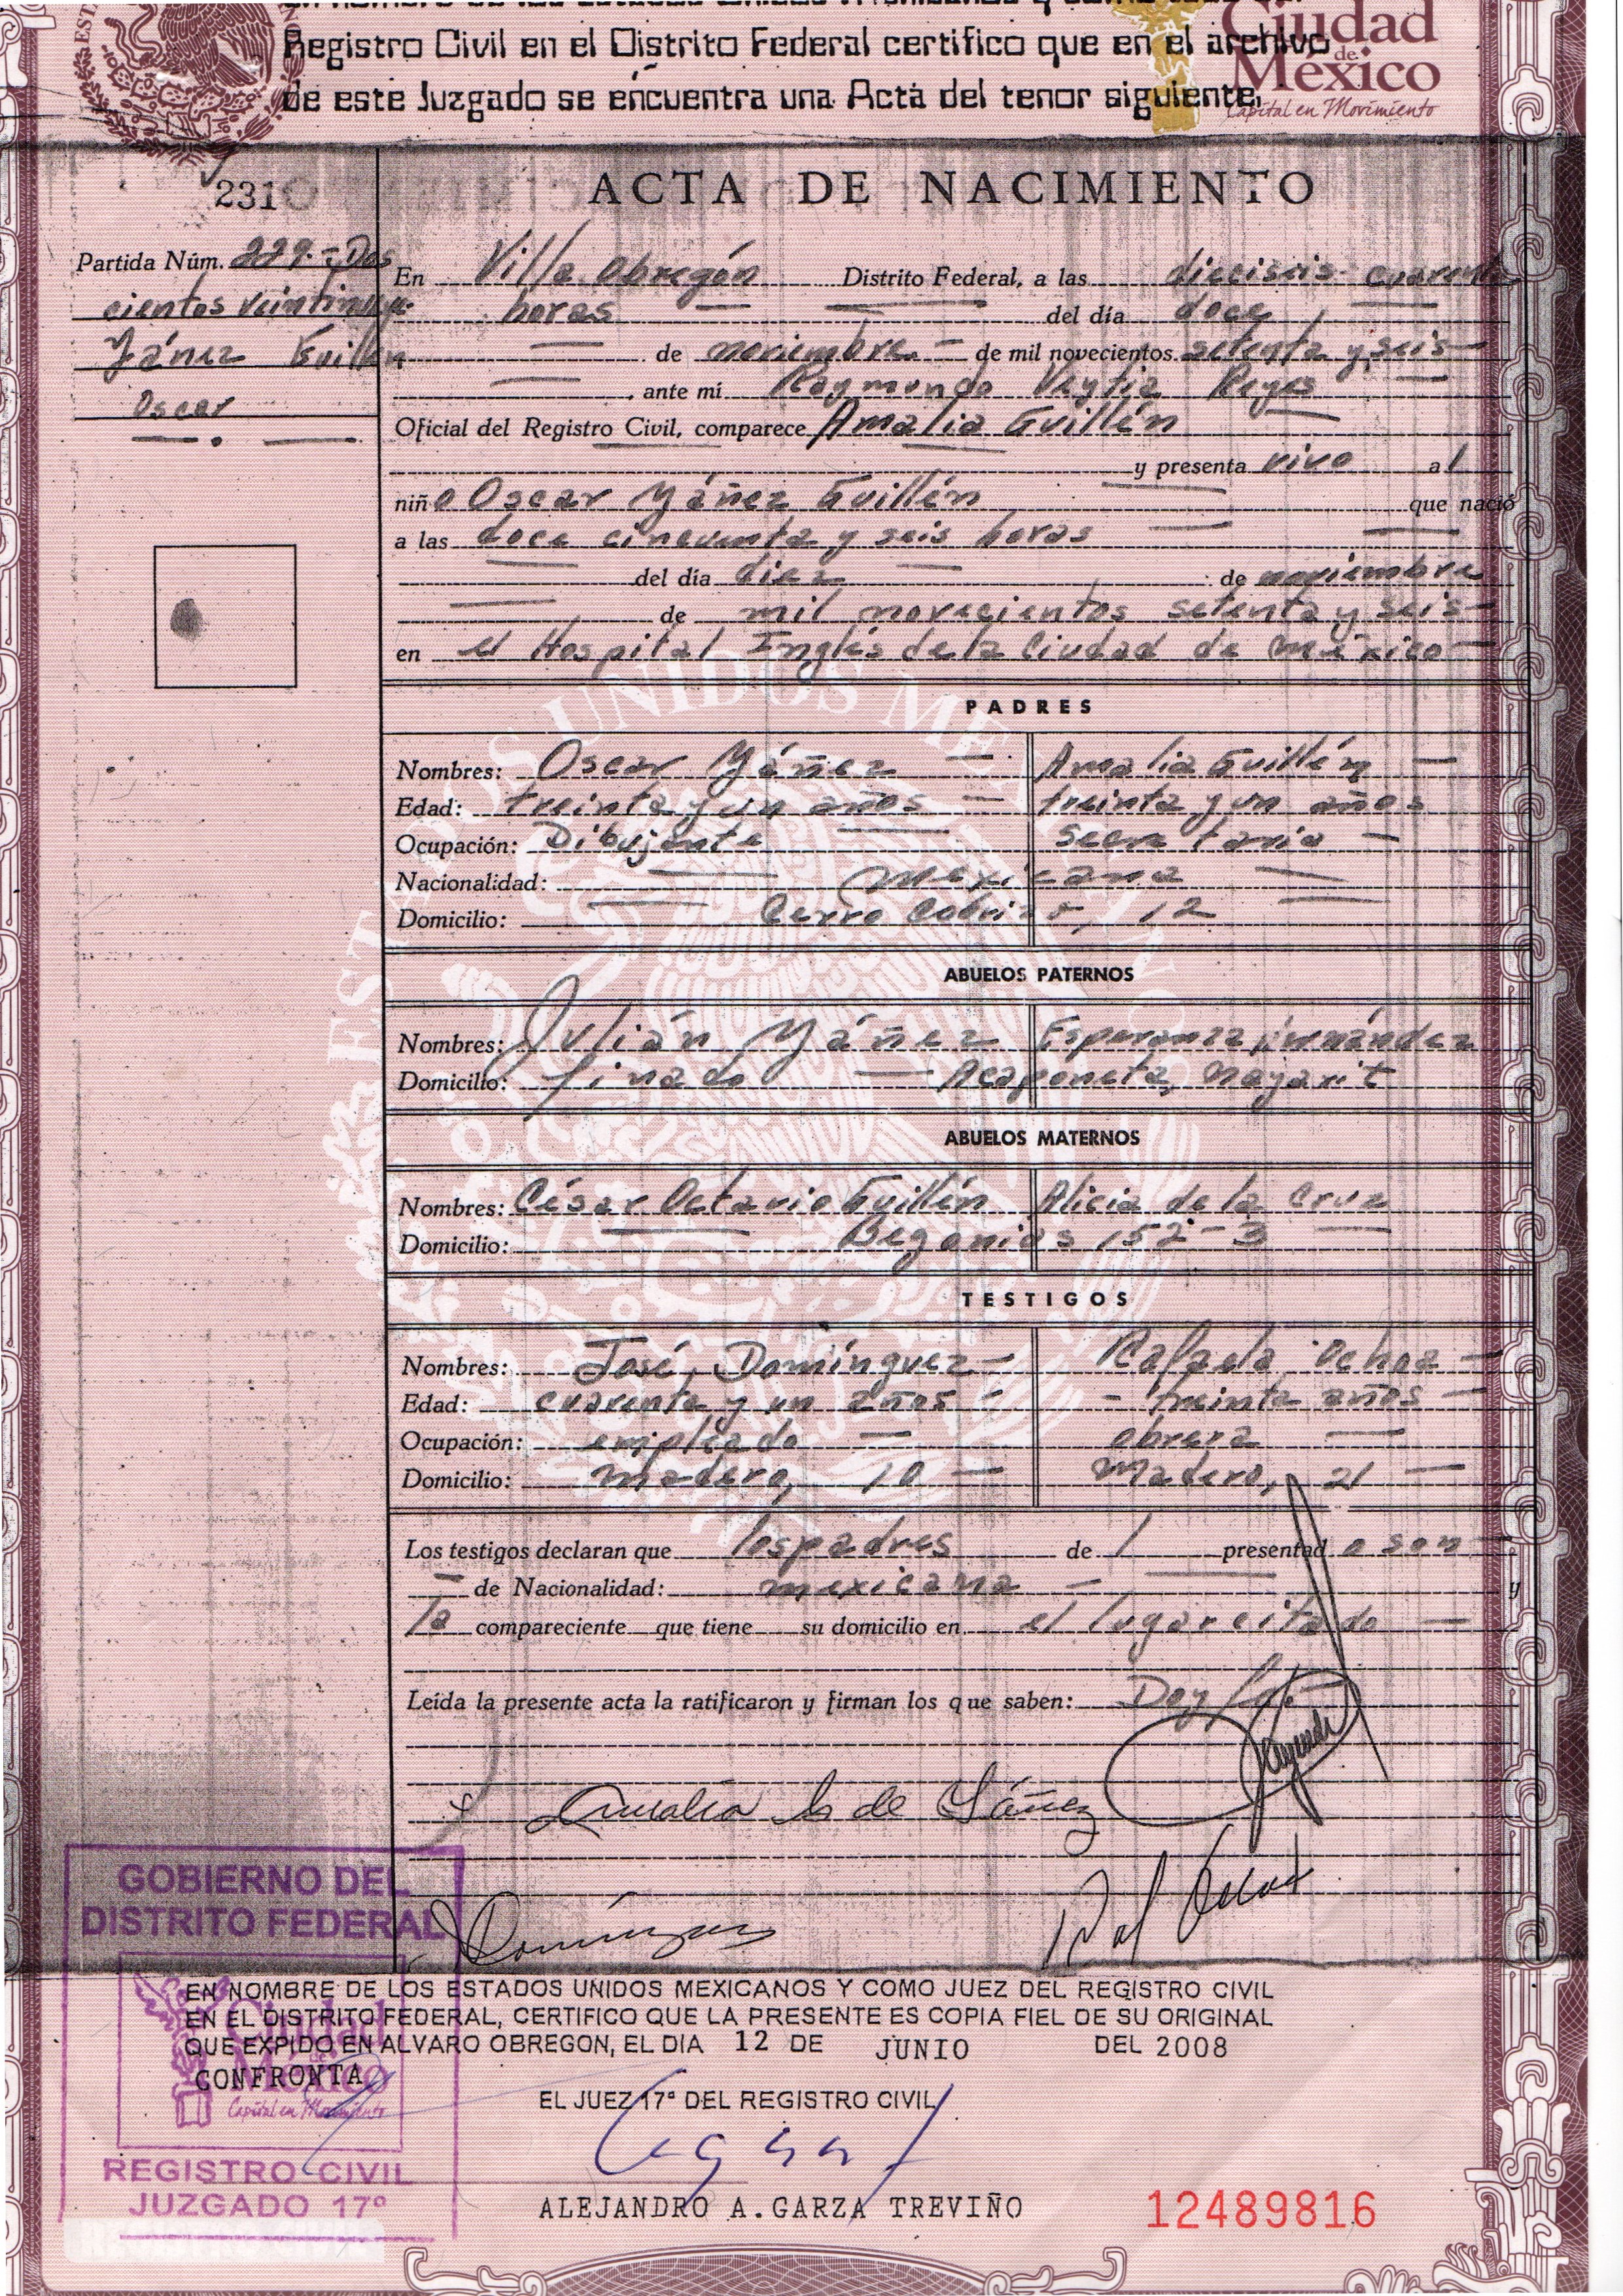 Registro Civil en el Distrito Federal certifico que en el archivo
de este Juzgado se encuentra una Acta del tenor siguiente,
Ciudad
de
México
Capital en Movimiento
231
ACTA DE NACIMIENTO
Partida Núm. 229.- Dos
cientos veintinueve
Yánez Guillén
Oscar
En Villa Obregón Distrito Federal, a las dieciseis cuarenta
horas del día doce
de noviembre de mil novecientos setenta y seis
, ante mí Raymundo Veytia Reyes
Oficial del Registro Civil, comparece Amalia Guillén
y presenta vivo al
niño Oscar Yáñez Guillén que nació
a las doce cincuenta y seis horas
del día diez de noviembre
de mil novecientos setenta y seis
en el Hospital Inglés de la Ciudad de México
PADRES
Nombres: Oscar Yáñez Amalia Guillén
Edad: treinta y un años treinta y un años
Ocupación: Dibujante secretaria
Nacionalidad: Mexicana
Domicilio: Cerro Cobrizo, 12
ABUELOS PATERNOS
Nombres: Julián Yáñez Esperanza Hernández
Domicilio: finado Acaponeta, Nayarit
ABUELOS MATERNOS
Nombres: César Octavio Guillén Alicia de la Cruz
Domicilio: Begonias 152-3
TESTIGOS
Nombres: José Domínguez Rafaela Ochoa
Edad: cuarenta y un años treinta años
Ocupación: empleado obrera
Domicilio: Madero, 10 Madero, 21
Los testigos declaran que los padres de l presentado son
de Nacionalidad: mexicana y
la compareciente que tiene su domicilio en el lugar citado
Leída la presente acta la ratificaron y firman los que saben: Doy fe.
Amalia G de Yáñez
Domínguez
GOBIERNO DEL
DISTRITO FEDERAL
EN NOMBRE DE LOS ESTADOS UNIDOS MEXICANOS Y COMO JUEZ DEL REGISTRO CIVIL
EN EL DISTRITO FEDERAL, CERTIFICO QUE LA PRESENTE ES COPIA FIEL DE SU ORIGINAL
QUE EXPIDO EN ALVARO OBREGON, EL DIA 12 DE JUNIO DEL 2008
CONFRONTA
Ciudad
de
México
Capital en Movimiento
EL JUEZ 17º DEL REGISTRO CIVIL
REGISTRO CIVIL
JUZGADO 17º
ALEJANDRO A. GARZA TREVIÑO
12489816
ESTADOS UNIDOS MEXICANOS